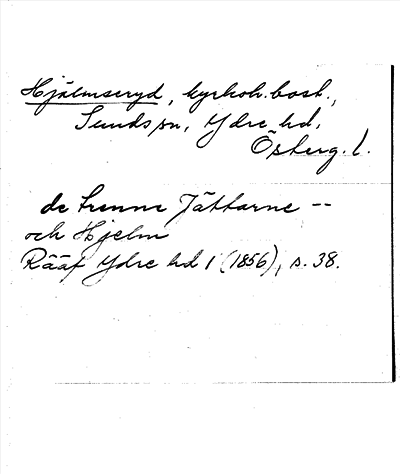 Hjälmseryd, kyrkoh.bost.,
Sunds sn, Ydre hd,
Österg. l.
de trenne Jättarne --
och Hjelm
Rääf Ydre hd 1 (1856), s. 38.